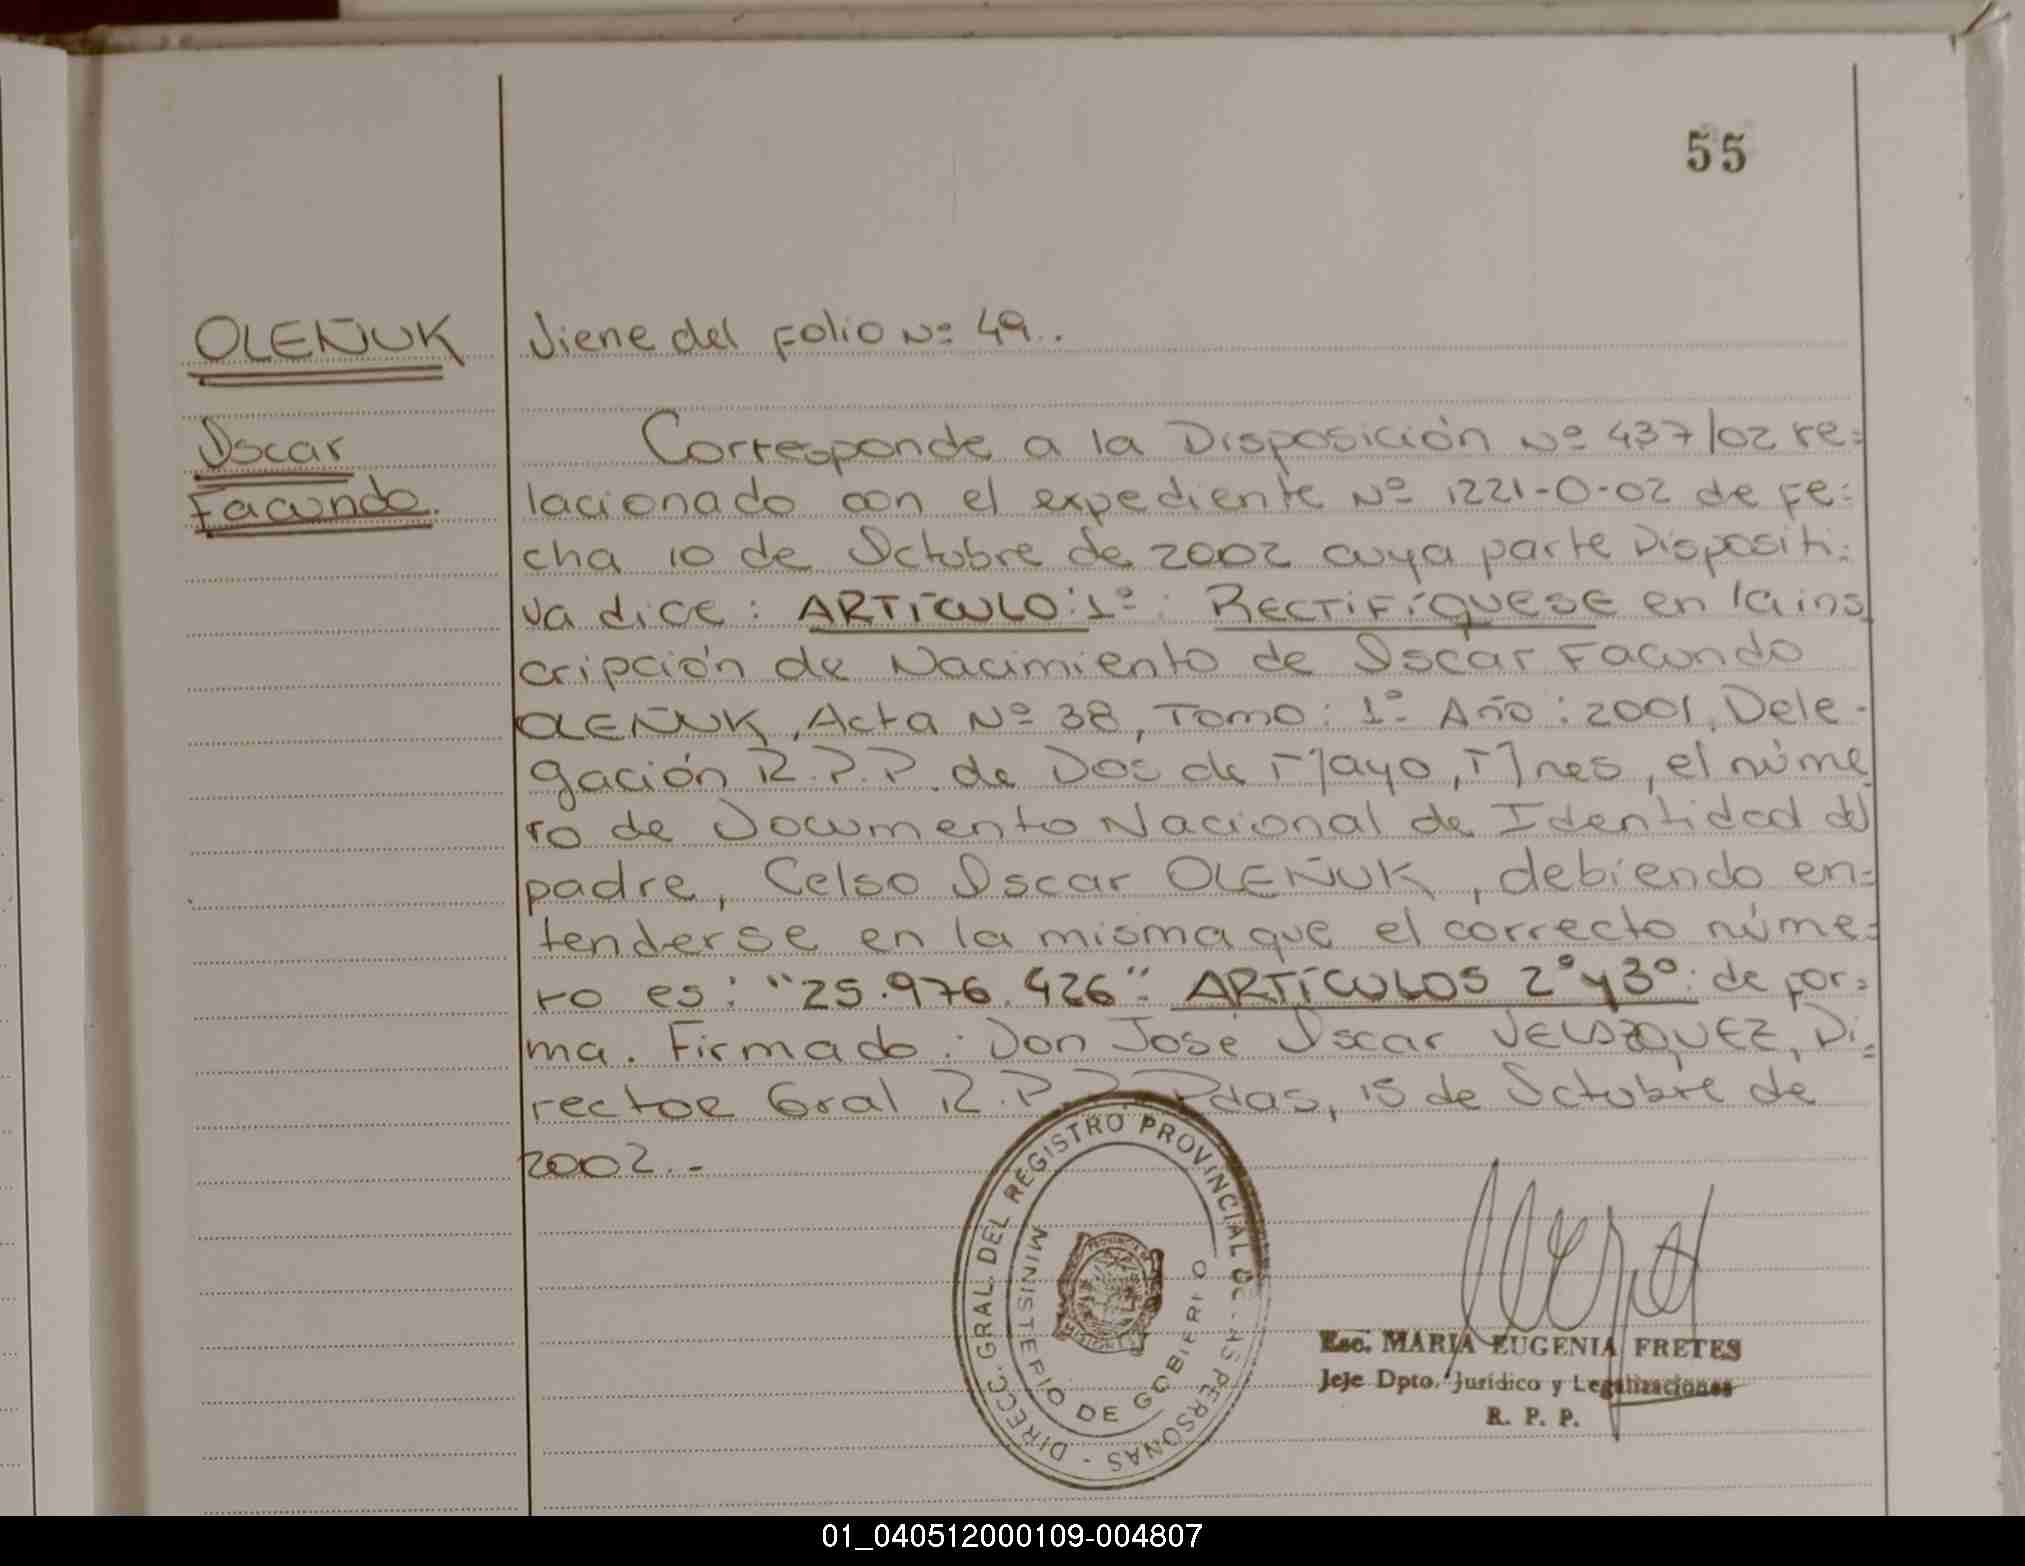 55
OLEÑUK
Viene del Folio Nº 49..
Oscar
Facundo.
Corresponde a la Disposición Nº 437/02 re=
lacionado con el expediente Nº 1221-O-02 de fe=
cha 10 de Octubre de 2002 cuya parte Dispositi=
va dice: ARTÍCULO:1º: RECTIFÍQUESE en la ins
cripción de Nacimiento de Oscar Facundo
OLEÑUK, Acta Nº 38, Tomo: 1º Año: 2001, Dele-
gación R.P.P. de Dos de Mayo, Mnes, el núme
ro de Documento Nacional de Identidad del
padre, Celso Oscar OLEÑUK, debiendo en=
tenderse en la misma que el correcto núme=
ro es: "25.976.426". ARTÍCULOS 2º y 3º: de for=
ma. Firmado: Don Jose Oscar VELAZQUEZ, Di=
rector Gral R.P.P. Pdas, 15 de Octubre de
2002.-
DIRECC. GRAL. DEL REGISTRO PROVINCIAL DE LAS PERSONAS -
MINISTERIO DE GOBIERNO
PROVINCIA DE
MISIONES
Esc. MARIA EUGENIA FRETES
Jefe Dpto. Jurídico y Legalizaciones
R. P. P.
01_040512000109-004807